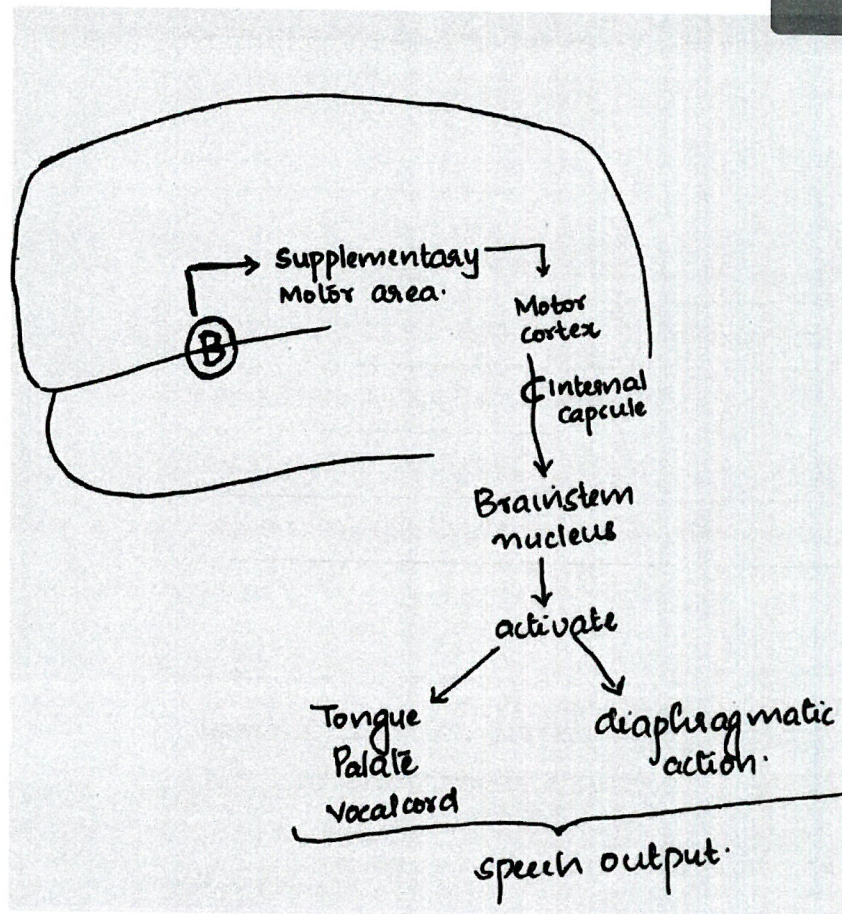 Supplementary
Motor area.
B
Motor
cortex
Internal
capcule
Brainstem
nucleus
activate
Tongue
Palate
Vocal cord
diaphragmatic
action.
speech output.